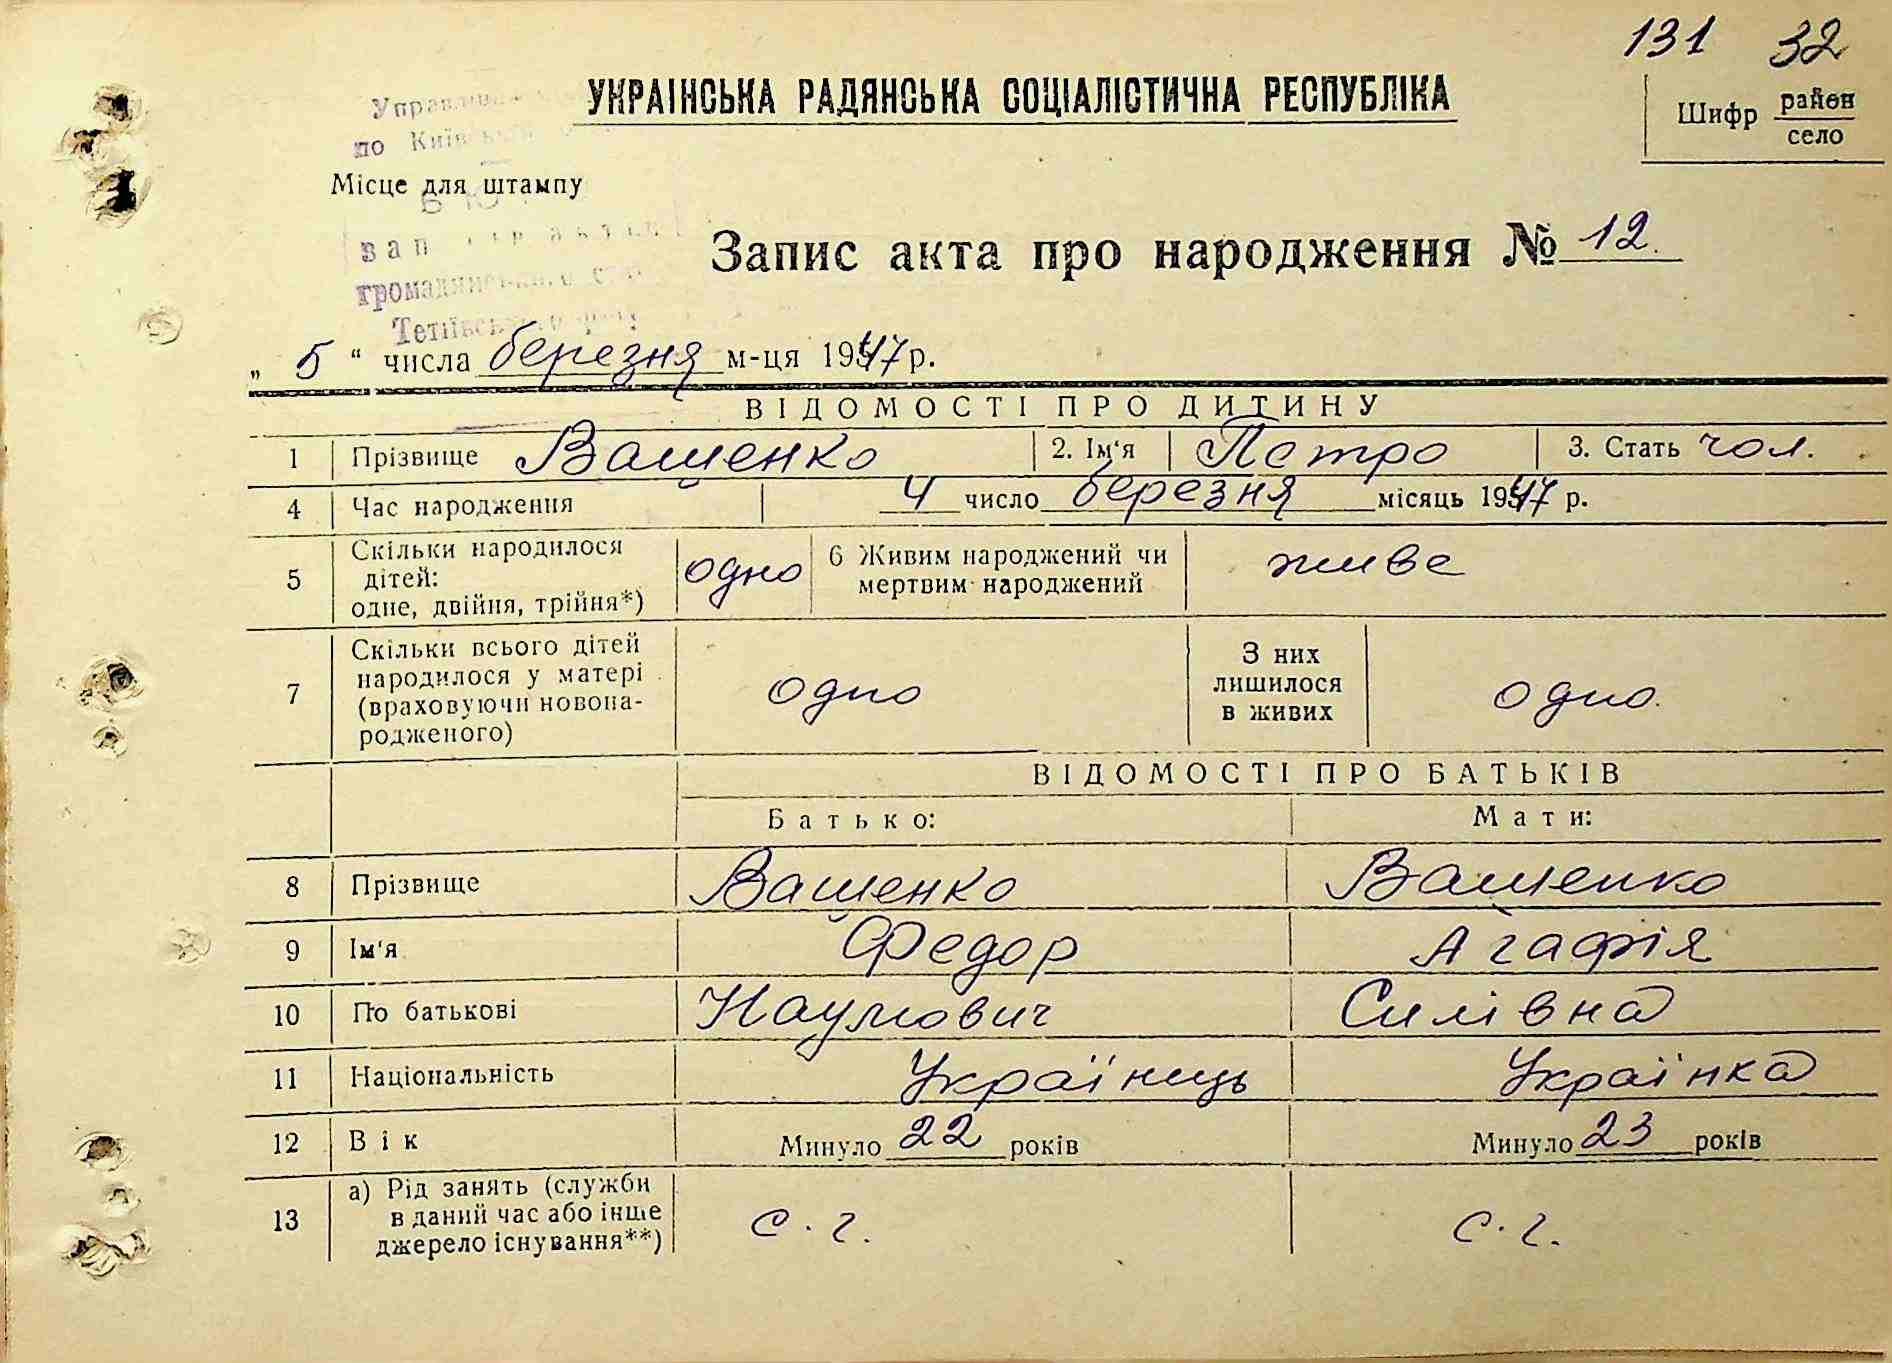 131 32
УКРАЇНСЬКА РАДЯНСЬКА СОЦІАЛІСТИЧНА РЕСПУБЛІКА
Шифр район
село
по Київській
Місце для штампу
Запис акта про народження № 12.
громадянського
Тетіївського
„ 5 “ числа березня м-ця 1947 р.
ВІДОМОСТІ ПРО ДИТИНУ
1 Прізвище Ващенко 2. Ім'я Петро 3. Стать чол.
4 Час народження 4 число березня місяць 1947 р.
5 Скільки народилося дітей: одне, двійня, трійня*) одно 6 Живим народжений чи мертвим народжений живе
7 Скільки всього дітей народилося у матері (враховуючи новонародженого) одно З них лишилося в живих одно.
ВІДОМОСТІ ПРО БАТЬКІВ
Батько: Мати:
8 Прізвище Ващенко Ващенко
9 Ім'я Федор Агафія
10 По батькові Наумович Силівна
11 Національність Українець Українка
12 Вік Минуло 22 років Минуло 23 років
13 а) Рід занять (служби в даний час або інше джерело існування**) с. г. с. г.